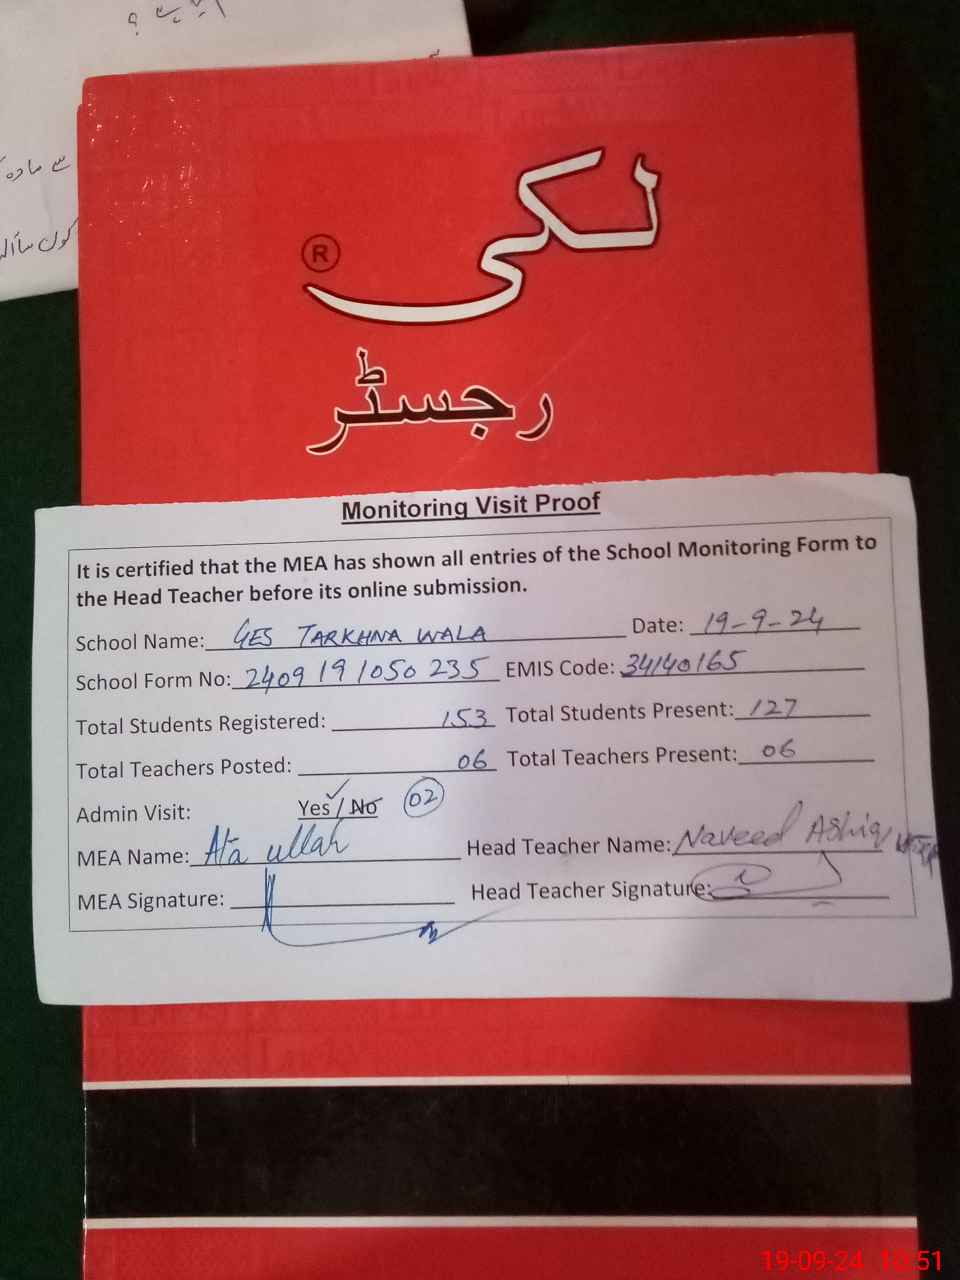 ہے ؟
سے مادہ
کون سا
لکی
®
رجسٹر
Monitoring Visit Proof
It is certified that the MEA has shown all entries of the School Monitoring Form to
the Head Teacher before its online submission.
School Name: GES TARKHNA WALA Date: 19-9-24
School Form No: 240919 1050 235 EMIS Code: 34140165
Total Students Registered: 153 Total Students Present: 127
Total Teachers Posted: 06 Total Teachers Present: 06
Admin Visit: Yes✓/No 02
MEA Name: Ata ullah Head Teacher Name: Naveed Ashiq
MEA Signature: Head Teacher Signature:
19-09-24 10:51